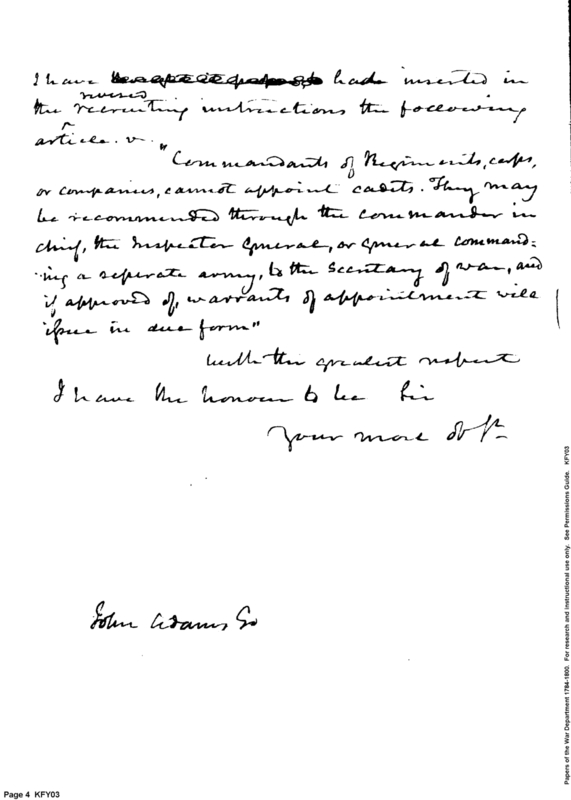 I have had inserted in
revised
the recruiting instructions the following
article. v.
"Commandants of Regiments, corps,
or companies, cannot appoint cadets. They may
be recommended through the commander in
chief, the Inspector General, or general command=
ing a seperate army, to the Secretary of war, and
if approved of, warrants of appointment will
issue in due form"
with the greatest respect
I have the honour to be Sir
Your most ob St
John Adams
Page 4 KFY03
Papers of the War Department 1784-1800. For research and instructional use only. See Permissions Guide. KFY03